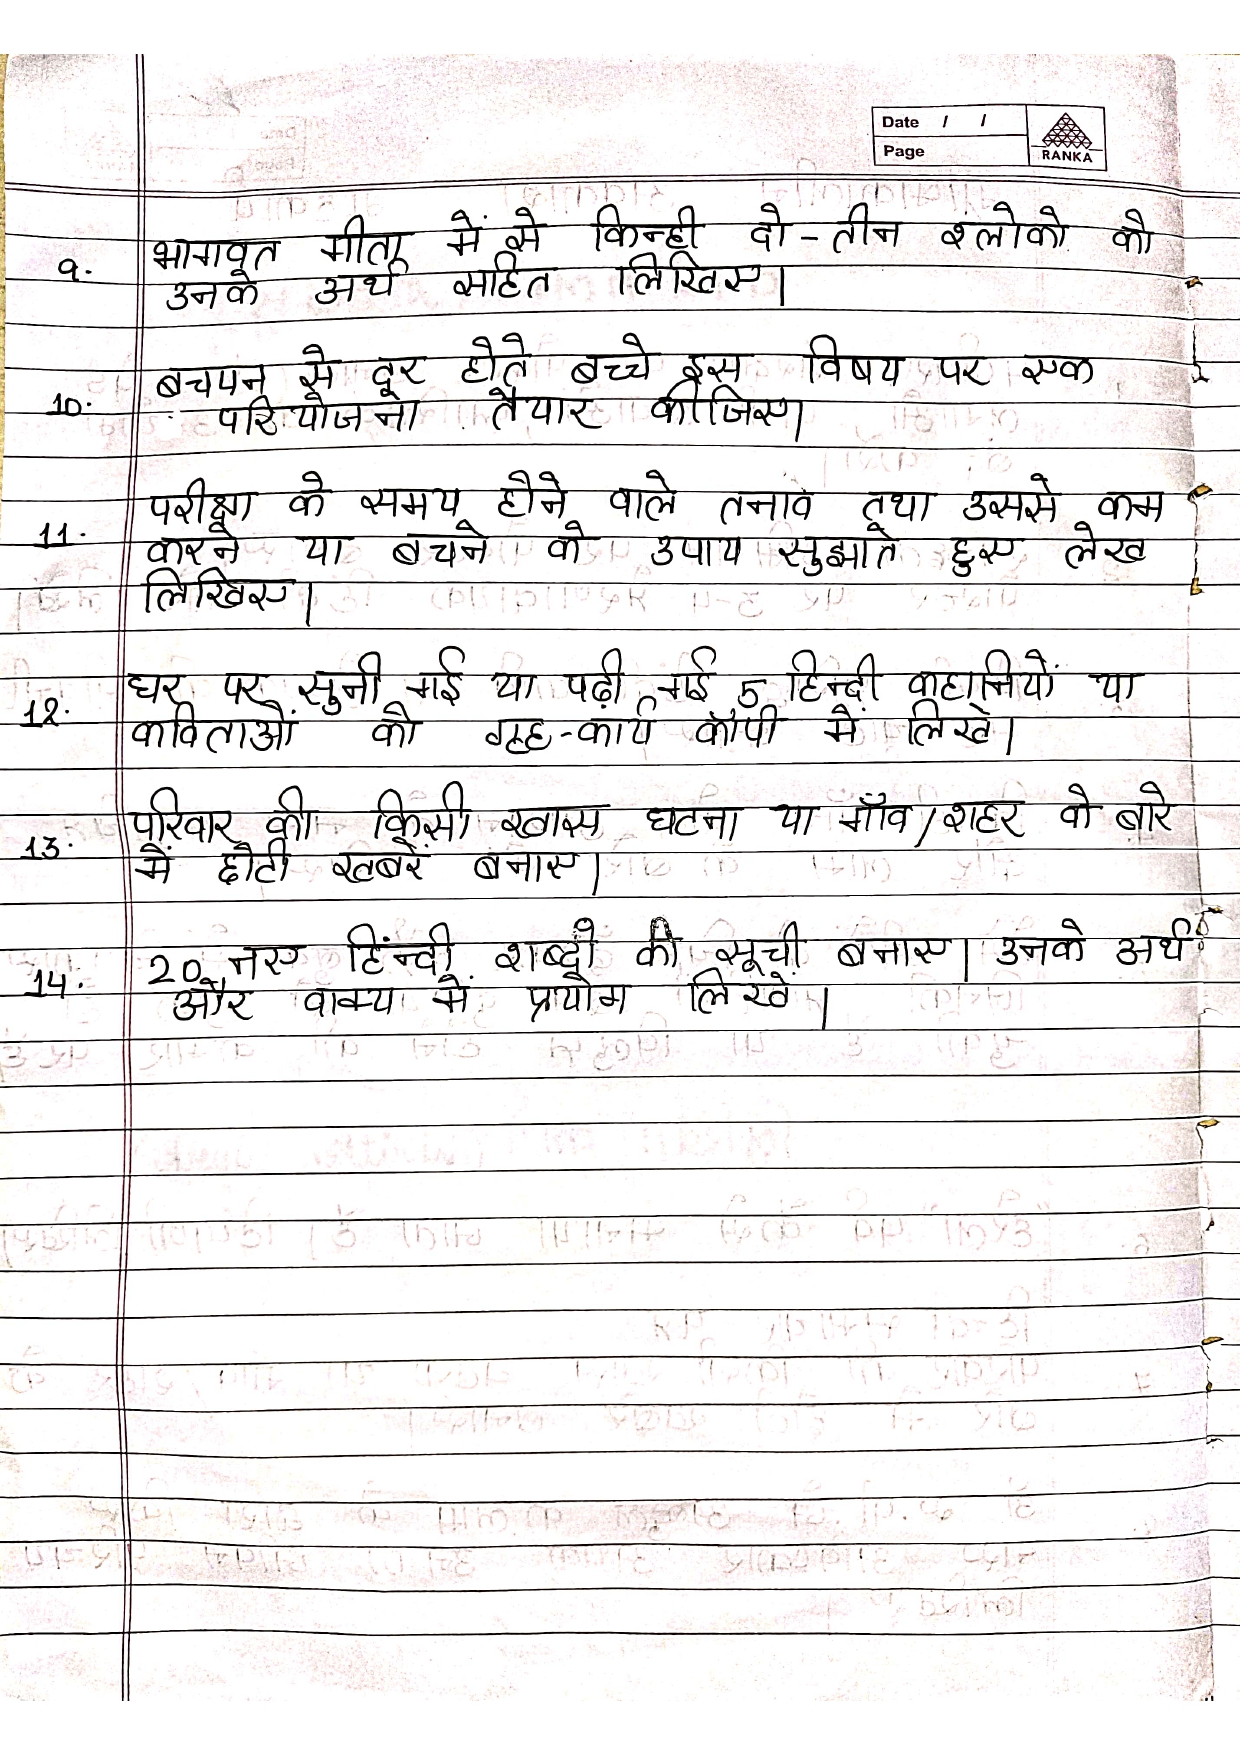 Date / /
Page
RANKA
9. भागवत गीता में से किन्ही दो - तीन श्लोको को
उनके अर्थ सहित लिखिए।
10. बचपन से दूर होते बच्चे इस विषय पर एक
परियोजना तैयार कीजिए।
11. परीक्षा के समय होने वाले तनाव तथा उससे कम
करने या बचने के उपाय सुझाते हुए लेख
लिखिए।
12. घर पर सुनी गई या पढ़ी गई 5 हिन्दी कहानियों या
कविताओं को गृह-कार्य कॉपी में लिखे।
13. परिवार की किसी खास घटना या गाँव/शहर के बारे
में छोटी खबरें बनाए।
14. 20 नए हिंन्दी शब्दों की सूची बनाए। उनके अर्थ
और वाक्य में प्रयोग लिखें।